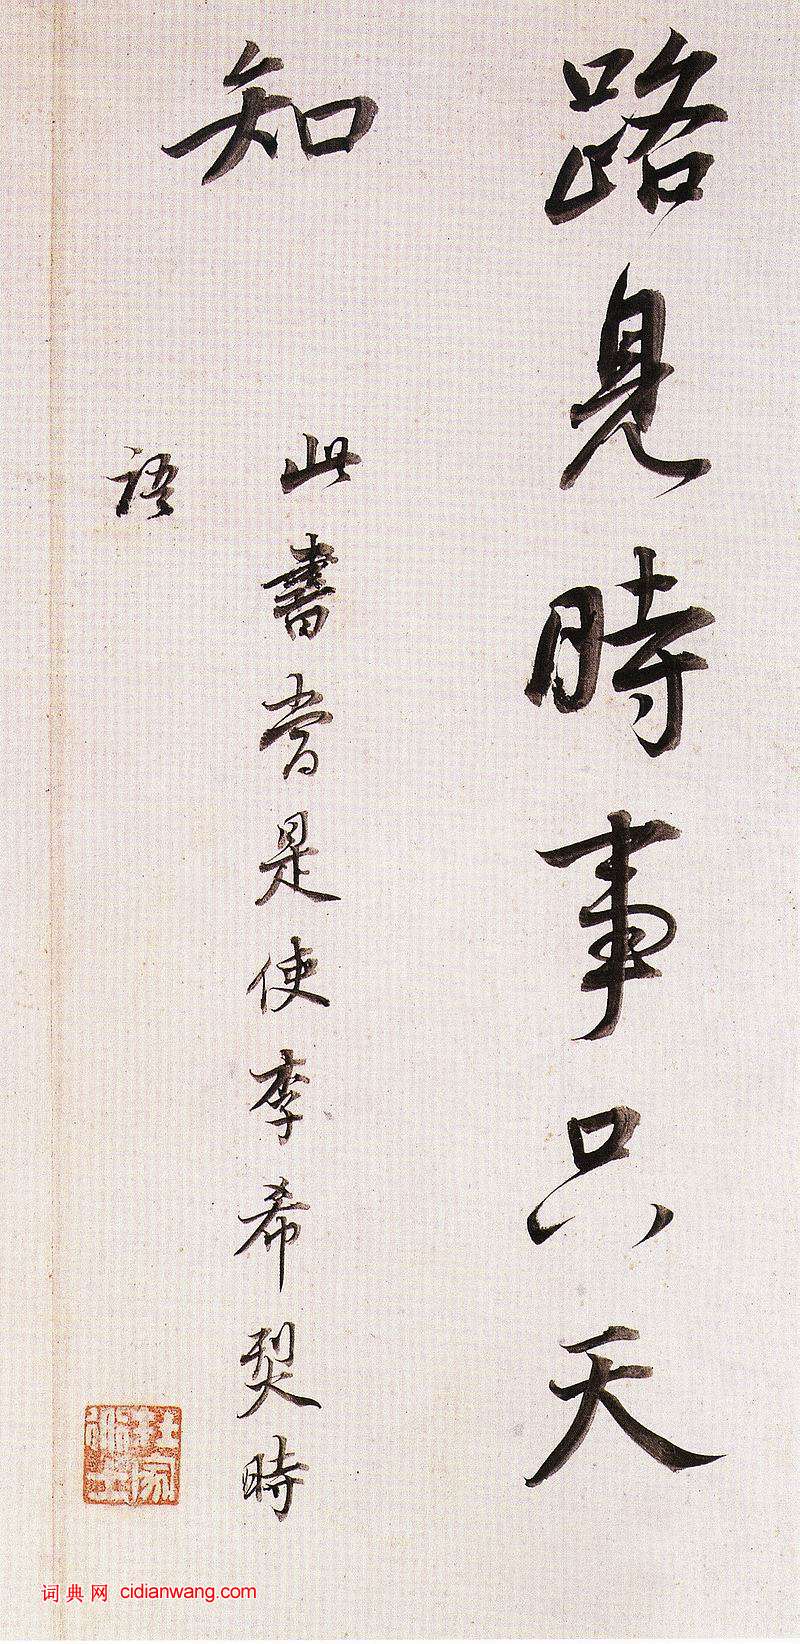 路見時事只天
知
此書當是使李希烈時
語
词典网 cidianwang.com